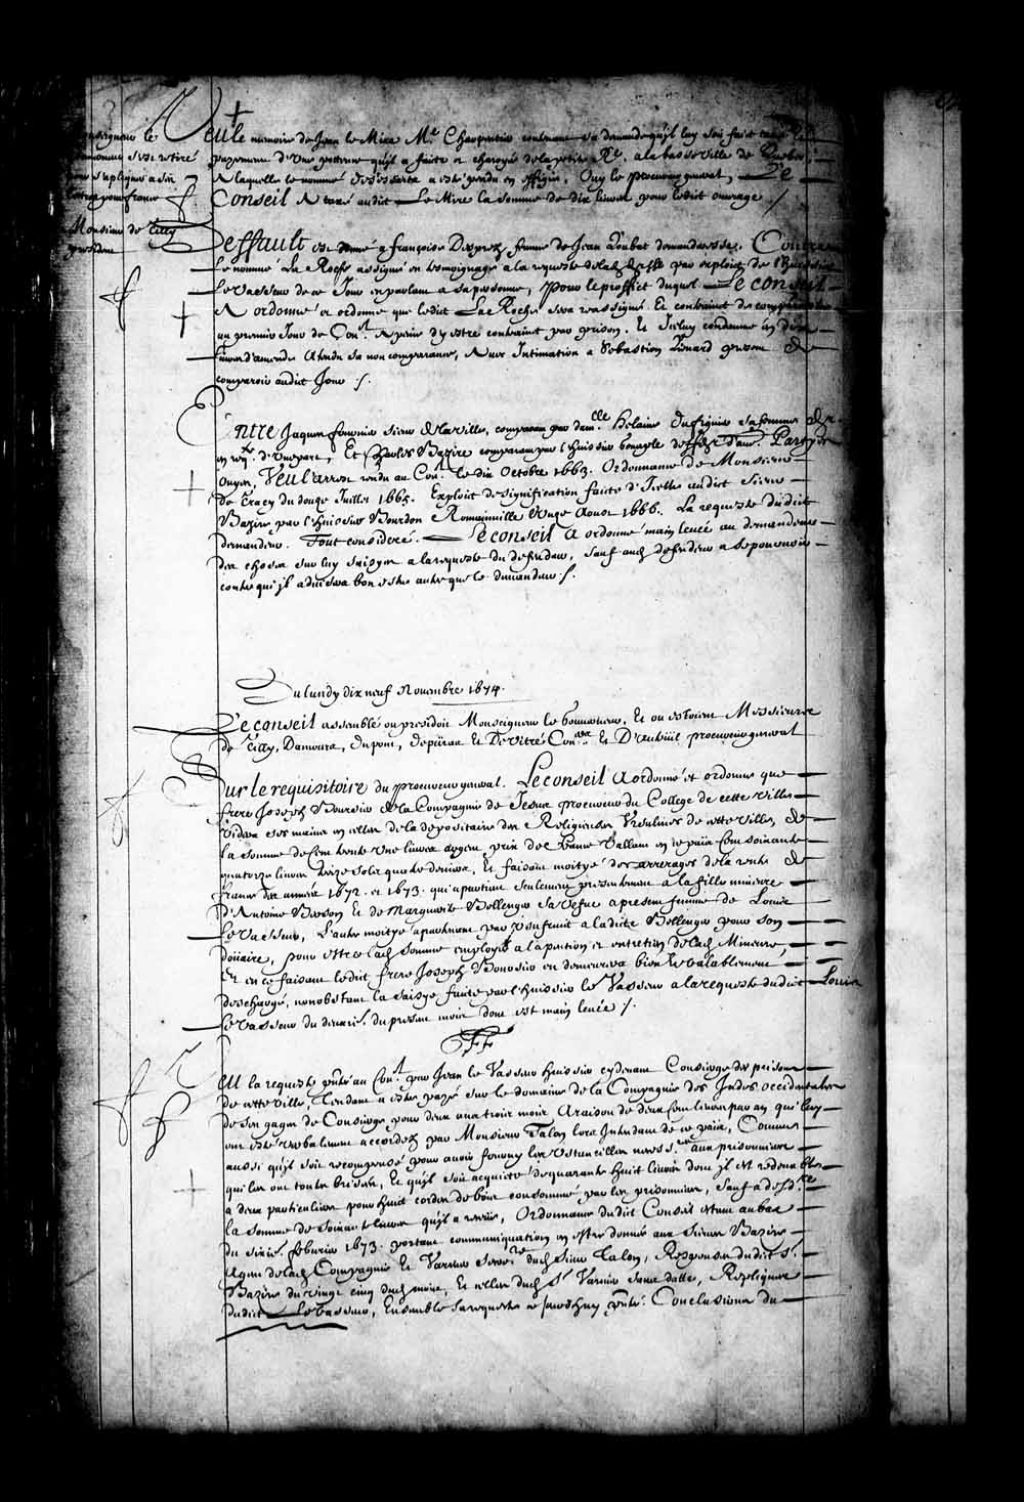 Monseigneur le
Gouverneur s'est retiré
Monsieur de Tilly
president
Veu le memoire de Jean le Mire Me. Charpentier contenant sa demande qu'il luy soit fait
payement d'une potence qu'il a faite et charoyée de la petite Re. a la basse ville de Quebec
A laquelle le nommé a esté pendu en effigie, Ouy le procureur general, Le
Conseil A taxé audit Le Mire la somme de dix livres pour ledit ouvrage /.
Deffault est donné a françoise Desprez femme de Jean demanderesse. Contre
Le nommé La Roche assigné en tesmoignage a la requeste de lad. par exploit de l'huissier
Levasseur de ce Jour en parlant a sa personne, pour le proffict duquel Le conseil
A ordonné et ordonne que ledict La Roche sera reassigné Et contraint de comparoistre
au premier Jour de Conl. A peine d'y estre contraint par prison. Et Iceluy condamné en dix
livres d'amende Attendu sa non comparance, Avec Intimation a Sebastien Lienard present de
comparoir audit Jour /.
Entre Jaques fournier sieur de la ville, comparant par damlle. Helaine Dufiguier sa femme der.
en d'une part, Et Charles Bazire comparant par l'huissier deffr. d'aur. Partyes
Ouyes, Veu l'arrest rendu au Conl. le dix Octobre 1663. Ordonnance de Monsieur
de Tracy du douze Juillet 1665. Exploit de signification faite d'Icelle audict sieur
Bazire par l'huissier Bourdon Romainville Onze Aoust 1666. La requeste dudict
demandeur. Tout consideré. Le conseil A ordonné main levée au demandeur
des choses sur luy saisyes a la requeste du defendeur, sauf aud. defendeur a se pourvoir
contre qui il advisera bon estre autre que le demandeur /.
Du lundy dix neuf Novembre 1674.
Le conseil assemblé ou presidoit Monseigneur le Gouverneur, Et ou estoient Messieurs
de Tilly, Damours, Dupont, Depeiras Et De vitré Conrs. Et D'Auteüil procureur general
Sur le requisitoire du procureur general. Le conseil A ordonné et ordonne que
frere Joseph Boursier de la Compagnie de Jesus procureur du College de cette ville
videra ses mains en celles de la depositaire des Religieuses Ursulines de cette ville, de
la somme de Cent trente Une livres
quatorze livres treize sols quatre deniers, Et faisant moityé des arrerages de la rente de
france des années 1672. et 1673. qui apartient seulement presentement a la fille mineure
d'Antoine Et de Marguerite Bellenger sa vefve a present femme de Louis
Levasseur, L'autre moityé apartenant par usufruit a ladite Bellenger pour son
doüaire, pour estre lad. somme employée a la pention et entretien de lad. Mineure,
Et en ce faisant ledit frere Joseph Boursier en demeurera bien Et valablement
deschargé, nonobstant la saisye faite par l'huissier le Vasseur a la requeste dudict Louis
Levasseur du du present mois dont est main levée /.
FF
Veu la requeste pnte. au Conl. par Jean le Vasseur huissier cy devant Concierge des prisons
de cette ville, Tendante a estre payé sur le domaine de la Compagnie des Indes occidentales
de ses gages de Concierge pour deux ans trois mois A raison de deux Cent livres par an qui luy
ont esté verbalement accordez par Monsieur Talon lors Intendant de ce païs, Comme
aussi qu'il soit recompensé pour avoir fourny les ustancilles necess.res aux prisonniers
qui les ont toutes brisées, Et qu'il soit acquitté de quarante huit livres dont il est redevable
a deux particuliers pour huit cordes de bois consommé par les prisonniers, sauf a
la somme de soixante livres qu'il a receue, Ordonnance dudict Conseil estant au bas
du sixie. febvrier 1673. portant communiquation en estre donnée aux sieurs Bazire
Agent de lad. Compagnie Et Varnier secre.re dud. sieur Talon, Responses dudict Sr.
Bazire du vingt cinq dud. mois, Et celles dud. Sr. Varnier sans datte, Repliques
dudict Levasseur, Ensemble sa requeste ce jourd'huy pnte. Conclusions du